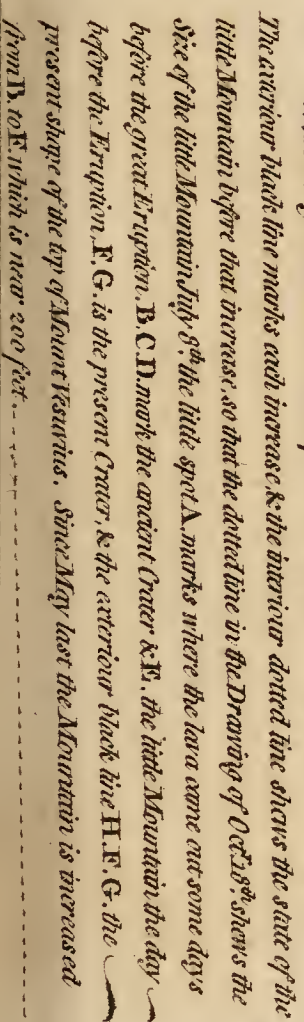 The exteriour black line marks each increase & the interiour dotted line shews the state of the
little Mountain before that increase, so that the dotted line in the Drawing of Octr. 18th. shews the
Size of the little Mountain July 8th. the little spot A. marks where the lava came out some days
before the great Eruption. B.C.D. mark the ancient Crater & E. the little Mountain the day
before the Eruption. F.G. is the present Crater, & the exteriour black line H.F.G. the
present shape of the top of Mount Vesuvius. Since May last the Mountain is increased
from B. to F. which is near 200 feet.